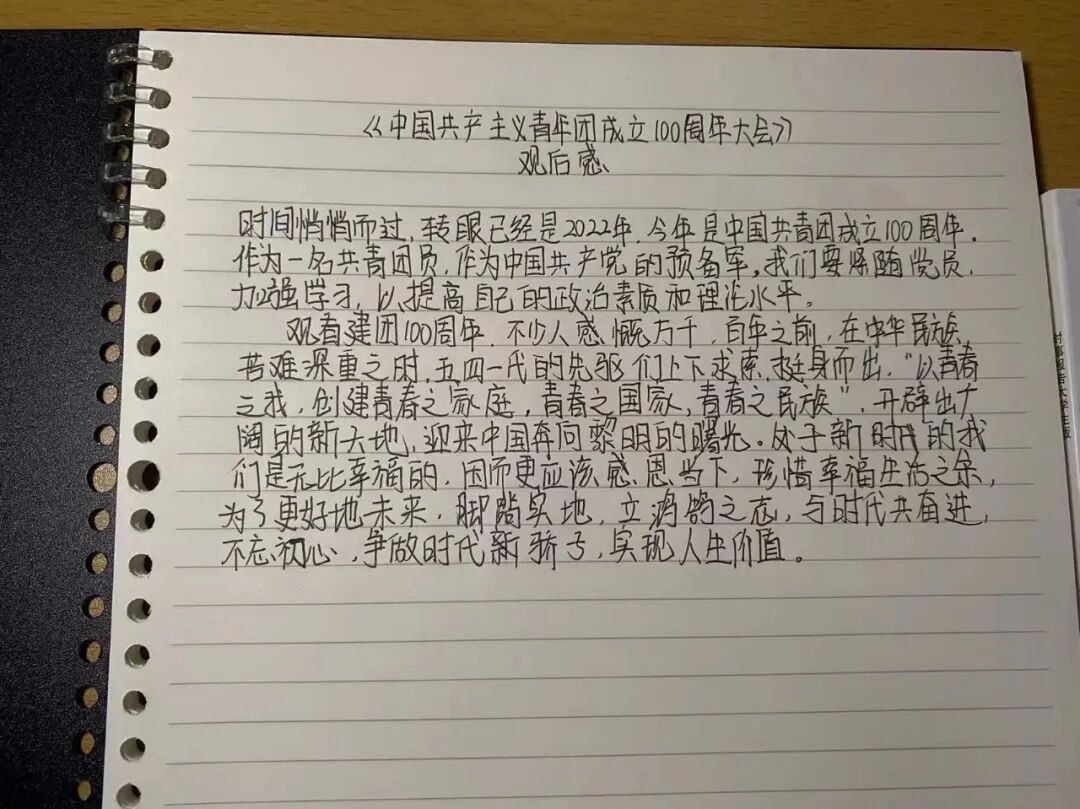 《中国共产主义青年团成立100周年大会》
观后感
时间悄悄而过,转眼已经是2022年,今年是中国共青团成立100周年.
作为一名共青团员,作为中国共产党的预备军,我们要紧随党员,
加强学习,以提高自己的政治素质和理论水平。
观看建团100周年,不少人感慨万千,百年之前,在中华民族
苦难深重之时,五四一代的先驱们上下求索,挺身而出,“以青春
之我,创建青春之家庭,青春之国家,青春之民族”,开辟出广
阔的新天地,迎来中国奔向黎明的曙光。处于新时代的我
们是无比幸福的,因而更应该感恩当下,珍惜幸福生活之余,
为了更好地未来,脚踏实地,立鸿鹄之志,与时代共奋进,
不忘初心,争做时代新骄子,实现人生价值。